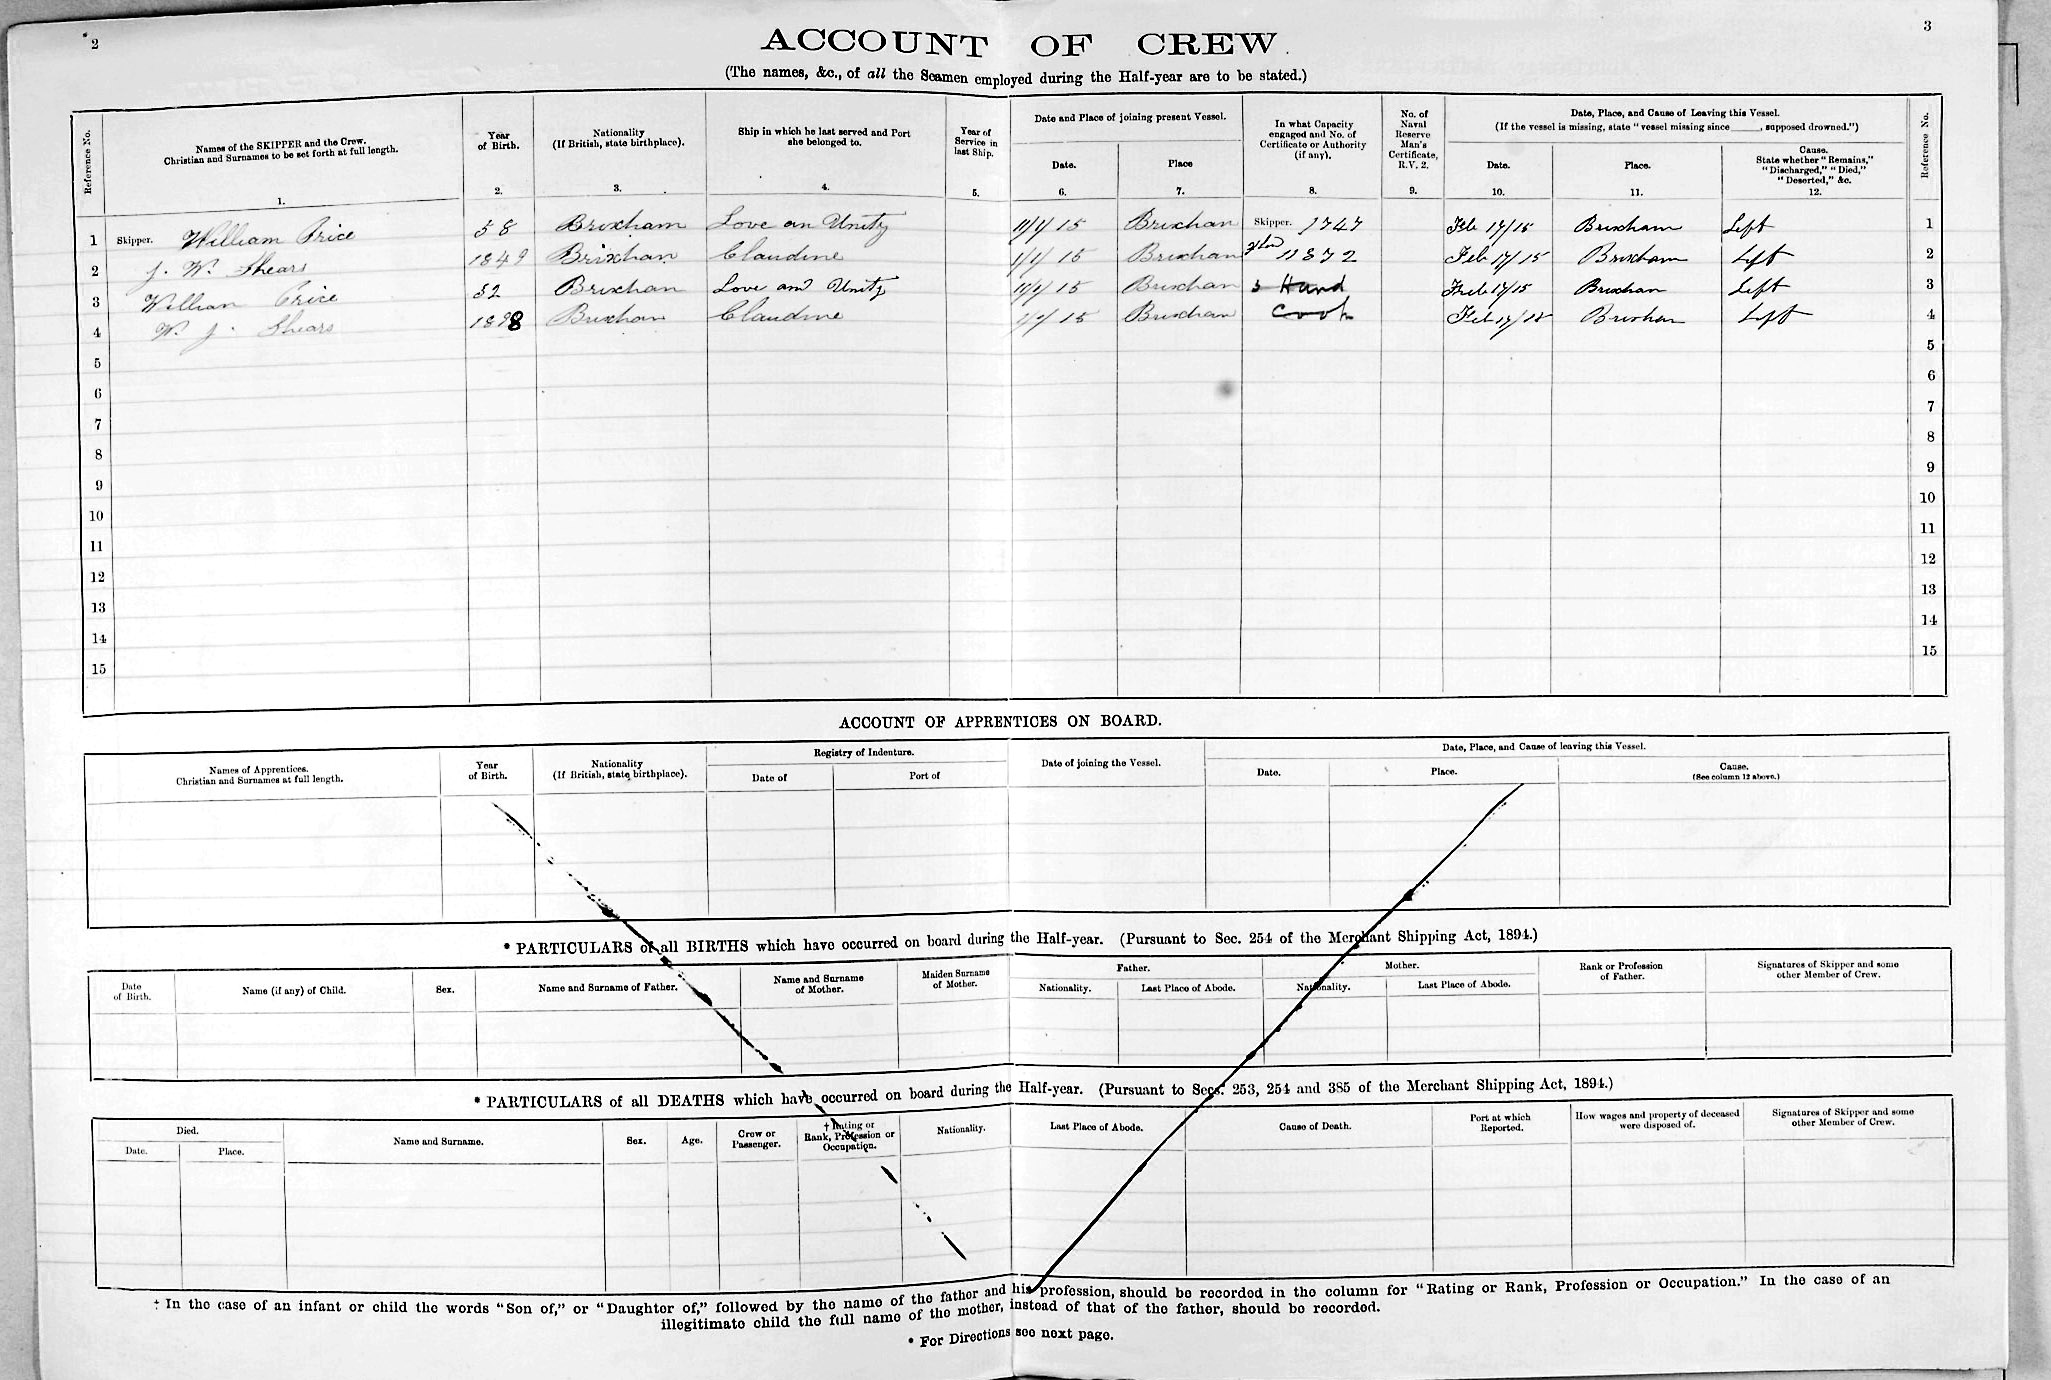 2
3
ACCOUNT OF CREW.
(The names, &c., of all the Seamen employed during the Half-year are to be stated.)
Reference No.
Names of the SKIPPER and the Crew.
Christian and Surnames to be set forth at full length.
1.
Year of Birth.
2.
Nationality
(If British, state birthplace).
3.
Ship in which he last served and Port she belonged to.
4.
Year of Service in last Ship.
5.
Date and Place of joining present Vessel.
Date.
6.
Place
7.
In what Capacity engaged and No. of Certificate or Authority (if any).
8.
No. of Naval Reserve Man's Certificate, R.V. 2.
9.
Date, Place, and Cause of Leaving this Vessel.
(If the vessel is missing, state "vessel missing since ____, supposed drowned.")
Date.
10.
Place.
11.
Cause.
State whether "Remains," "Discharged," "Died," "Deserted," &c.
12.
Reference No.
1 Skipper. William Price 58 Brixham Love an Unity 15 Brixham Skipper. 1747 Feb 17/15 Brixham Left 1
2 J. W. Shears 1849 Brixham Claudine 1/1/15 Brixham 11872 Feb 17/15 Brixham Left 2
3 William Price 52 Brixham Love and Unity 15 Brixham 3 Hand Feb 17/15 Brixham Left 3
4 W. J. Shears 1898 Brixham Claudine 15 Brixham Cook Feb 17/15 Brixham Left 4
5 5
6 6
7 7
8 8
9 9
10 10
11 11
12 12
13 13
14 14
15 15
ACCOUNT OF APPRENTICES ON BOARD.
Names of Apprentices.
Christian and Surnames at full length.
Year of Birth.
Nationality
(If British, state birthplace).
Registry of Indenture.
Date of
Port of
Date of joining the Vessel.
Date, Place, and Cause of leaving this Vessel.
Date.
Place.
Cause.
(See column 12 above.)
* PARTICULARS of all BIRTHS which have occurred on board during the Half-year. (Pursuant to Sec. 254 of the Merchant Shipping Act, 1894.)
Date of Birth.
Name (if any) of Child.
Sex.
Name and Surname of Father.
Name and Surname of Mother.
Maiden Surname of Mother.
Father.
Nationality.
Last Place of Abode.
Mother.
Nationality.
Last Place of Abode.
Rank or Profession of Father.
Signatures of Skipper and some other Member of Crew.
* PARTICULARS of all DEATHS which have occurred on board during the Half-year. (Pursuant to Secs. 253, 254 and 385 of the Merchant Shipping Act, 1894.)
Died.
Date.
Place.
Name and Surname.
Sex.
Age.
Crew or Passenger.
† Rating or Rank, Profession or Occupation.
Nationality.
Last Place of Abode.
Cause of Death.
Port at which Reported.
How wages and property of deceased were disposed of.
Signatures of Skipper and some other Member of Crew.
† In the case of an infant or child the words "Son of," or "Daughter of," followed by the name of the father and his profession, should be recorded in the column for "Rating or Rank, Profession or Occupation." In the case of an
illegitimate child the full name of the mother, instead of that of the father, should be recorded.
* For Directions see next page.